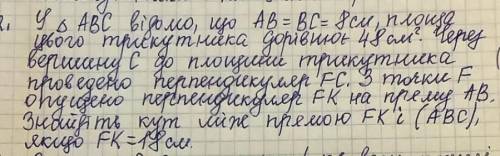 2. У △ ABC відомо, що AB = BC = 8см, площа
цього трикутника дорівнює 48см². Через
вершину C до площини трикутника
проведено перпендикуляр FC. З точки F
опущено перпендикуляр FK на пряму AB.
Знайдіть кут між прямою FK і (ABC),
якщо FK=18см.